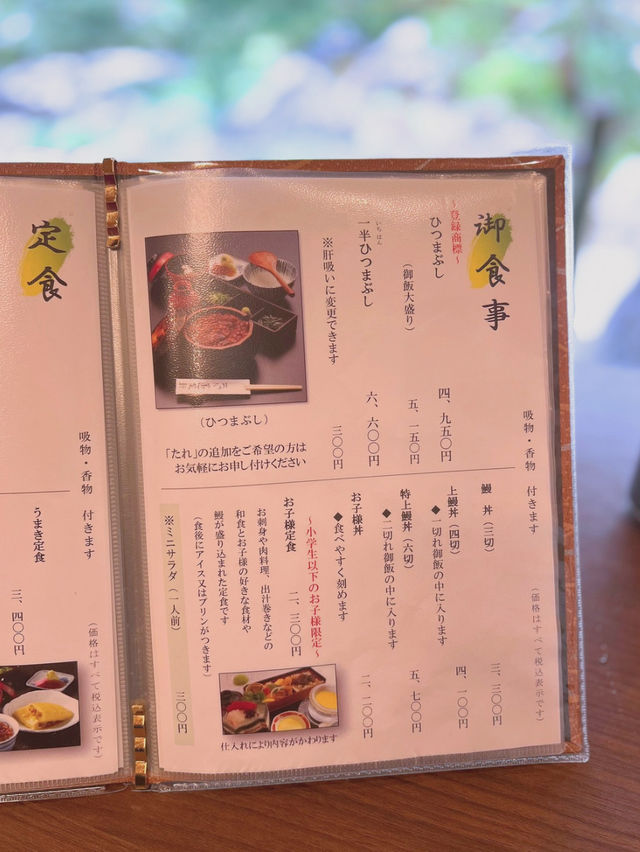 御食事
吸物・香物 付きます
（価格はすべて税込表示です）
～登録商標～
ひつまぶし 四、九五〇円
（御飯大盛り） 五、一五〇円
いちはん
一半ひつまぶし 六、六〇〇円
※肝吸いに変更できます 三〇〇円
（ひつまぶし）
「たれ」の追加をご希望の方は
お気軽にお申し付けください
鰻丼（三切） 三、三〇〇円
上鰻丼（四切） 四、一〇〇円
◆一切れ御飯の中に入ります
特上鰻丼（六切） 五、七〇〇円
◆二切れ御飯の中に入ります
お子様丼 二、二〇〇円
◆食べやすく刻めます
～小学生以下のお子様限定～
お子様定食 二、三〇〇円
お刺身や肉料理、出汁巻きなどの
和食とお子様の好きな食材や
鰻が盛り込まれた定食です
（食後にアイス又はプリンがつきます）
仕入れにより内容がかわります
※ミニサラダ（一人前） 三〇〇円
定食
吸物・香物 付きます
（価格はすべて税込表示です）
うまき定食 三、四〇〇円